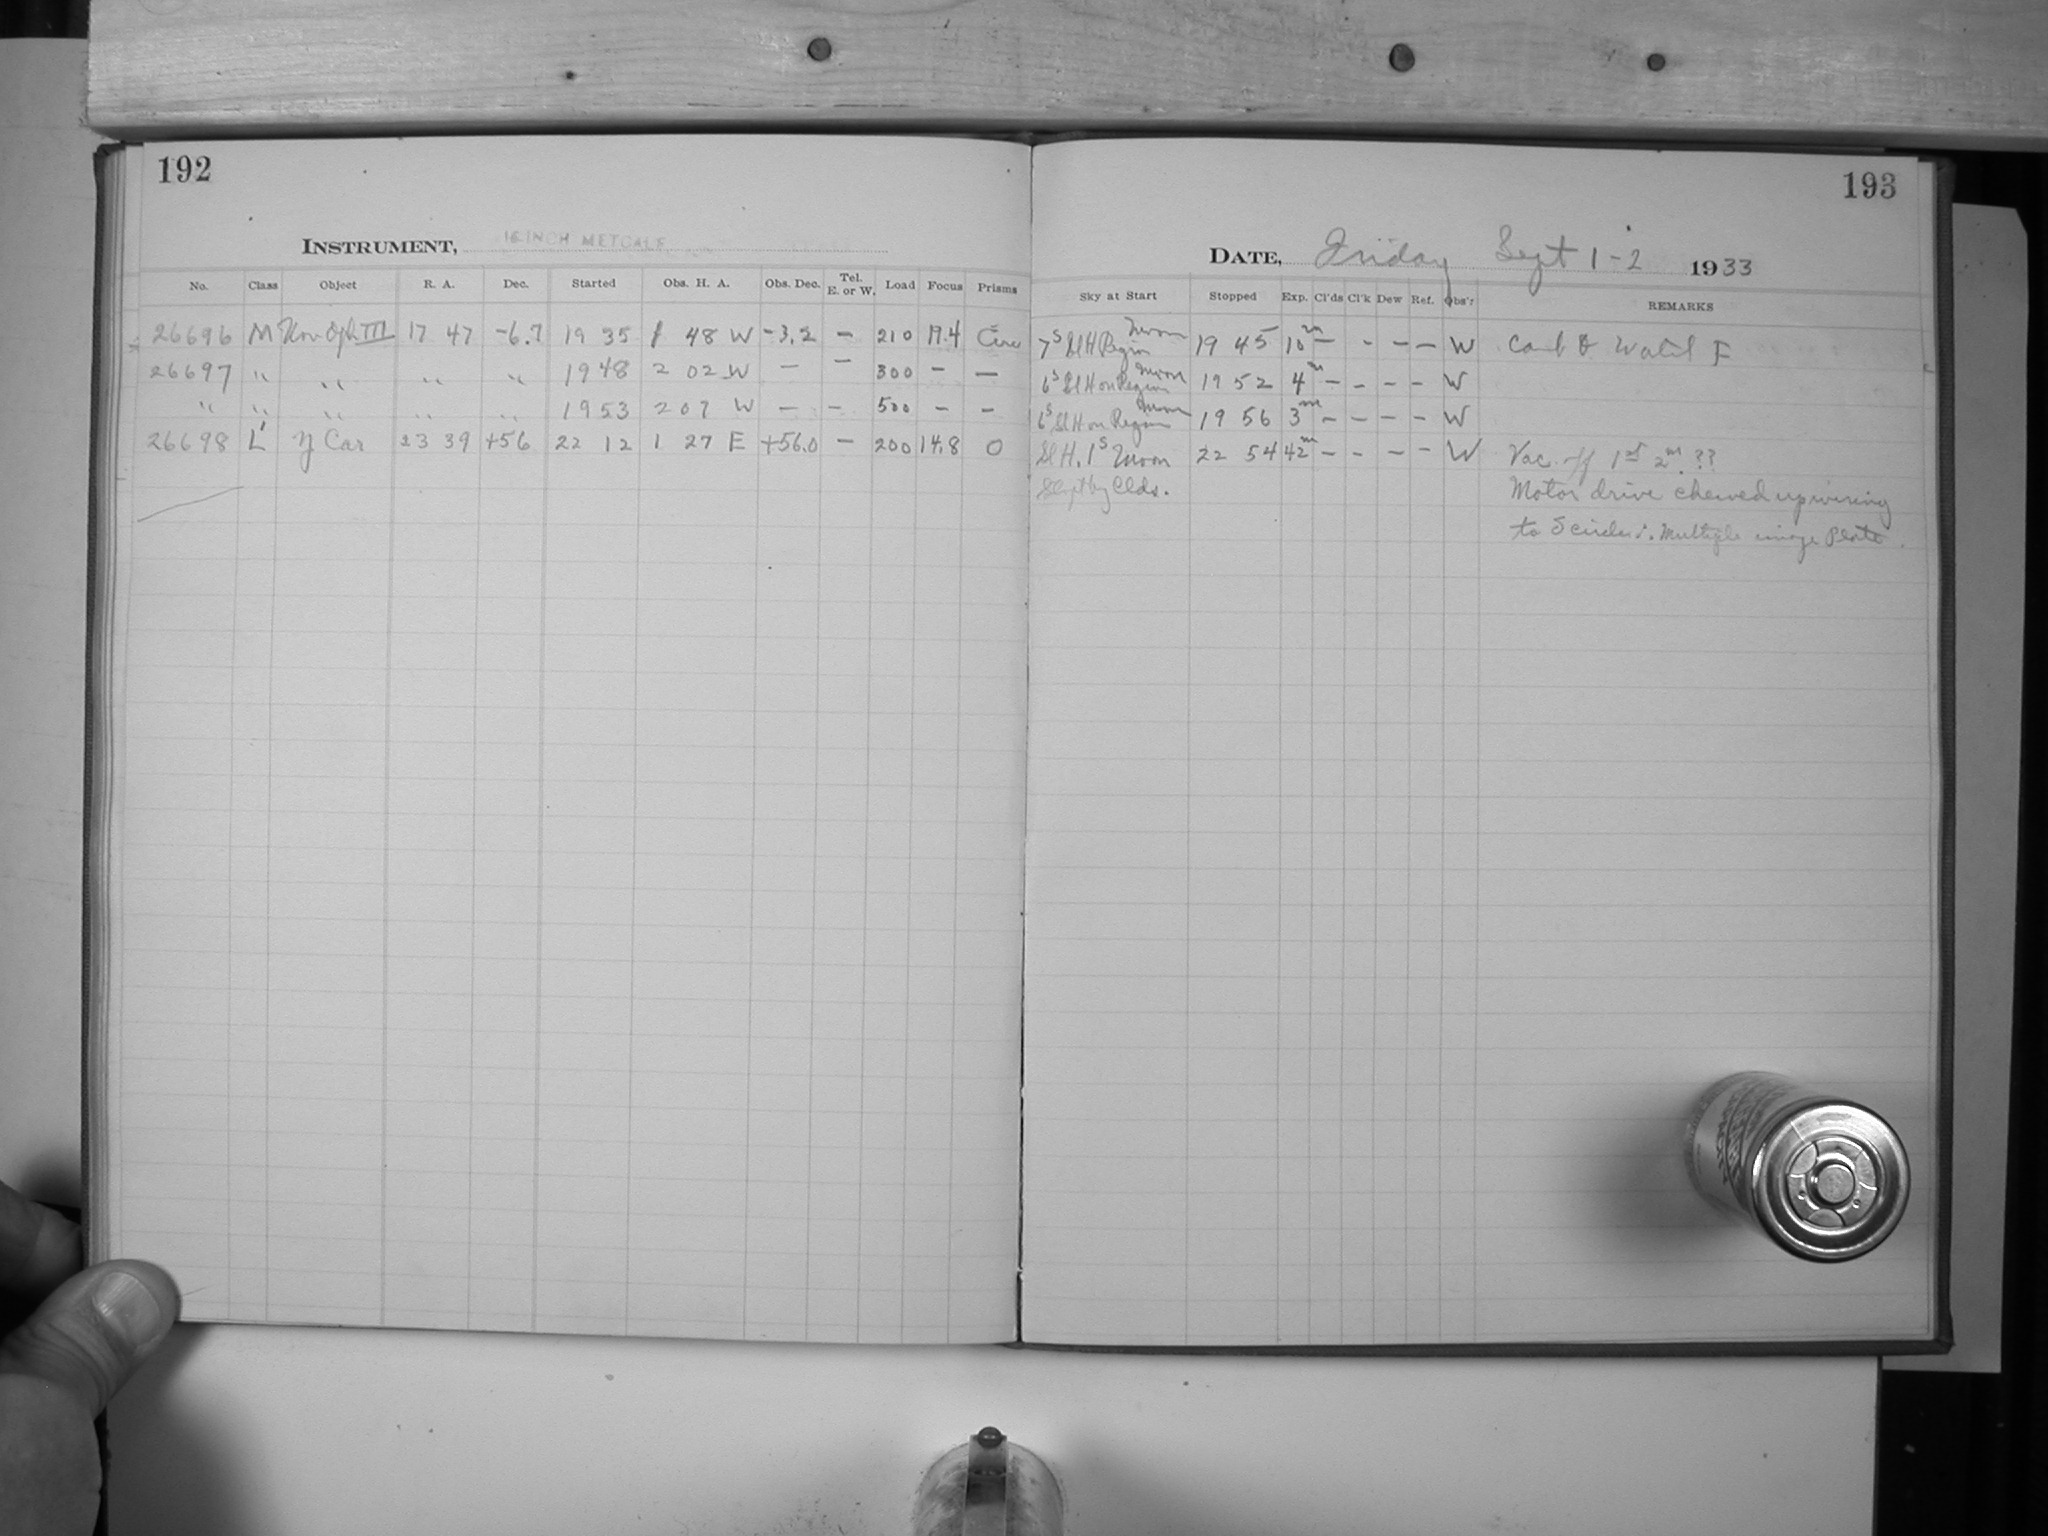 192
193
INSTRUMENT, 16 INCH METCALF
DATE, Friday Sept 1-2 1933
No. Class Object R. A. Dec. Started Obs. H. A. Obs. Dec. Tel. E. or W. Load Focus Prisms Sky at Start Stopped Exp. Cl'ds Cl'k Dew Ref. Obs'r REMARKS
26696 M Nov. Oph III 17 47 -6.7 19 35 1 48 W -3.2 - 210 17.4 Circ 7s Sl H Region Moon 19 45 10m - - - - W
26697 " " " " 19 48 2 02 W - - 300 - - 6s Sl H on Region Moon 19 52 4m - - - - W
" " " " " 19 53 2 07 W - - 500 - - 6s Sl H on Region Moon 19 56 3m - - - - W
26698 L' Car 23 39 +56 22 12 1 27 E +56.0 - 200 14.8 0 Sl H. 1s Moon 22 54 42m - - - - W Vac. off 1st 2m. ??
by Clds. Motor drive chewed up wiring
to S circles ∴ Multiple image Plate.